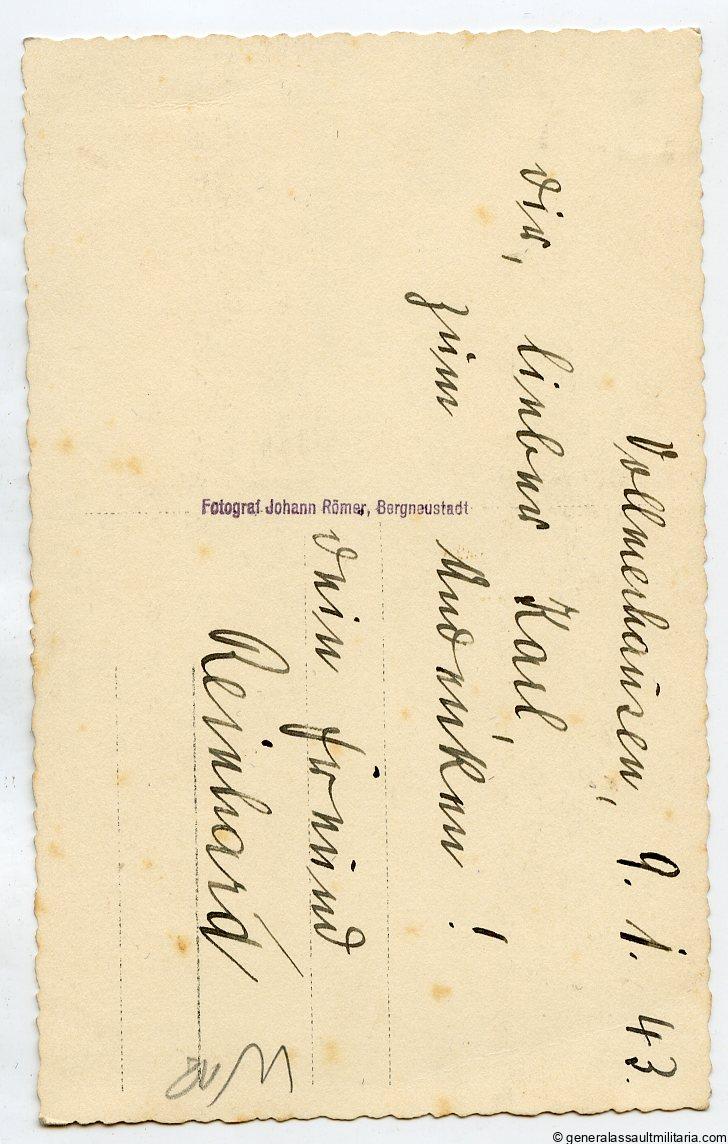 Vollmerhausen, 9.1.43.
Dir, lieber Karl,
zum Andenken!
Dein Freund
Reinhard
Fotograf Johann Römer, Bergneustadt
© generalassaultmilitaria.com